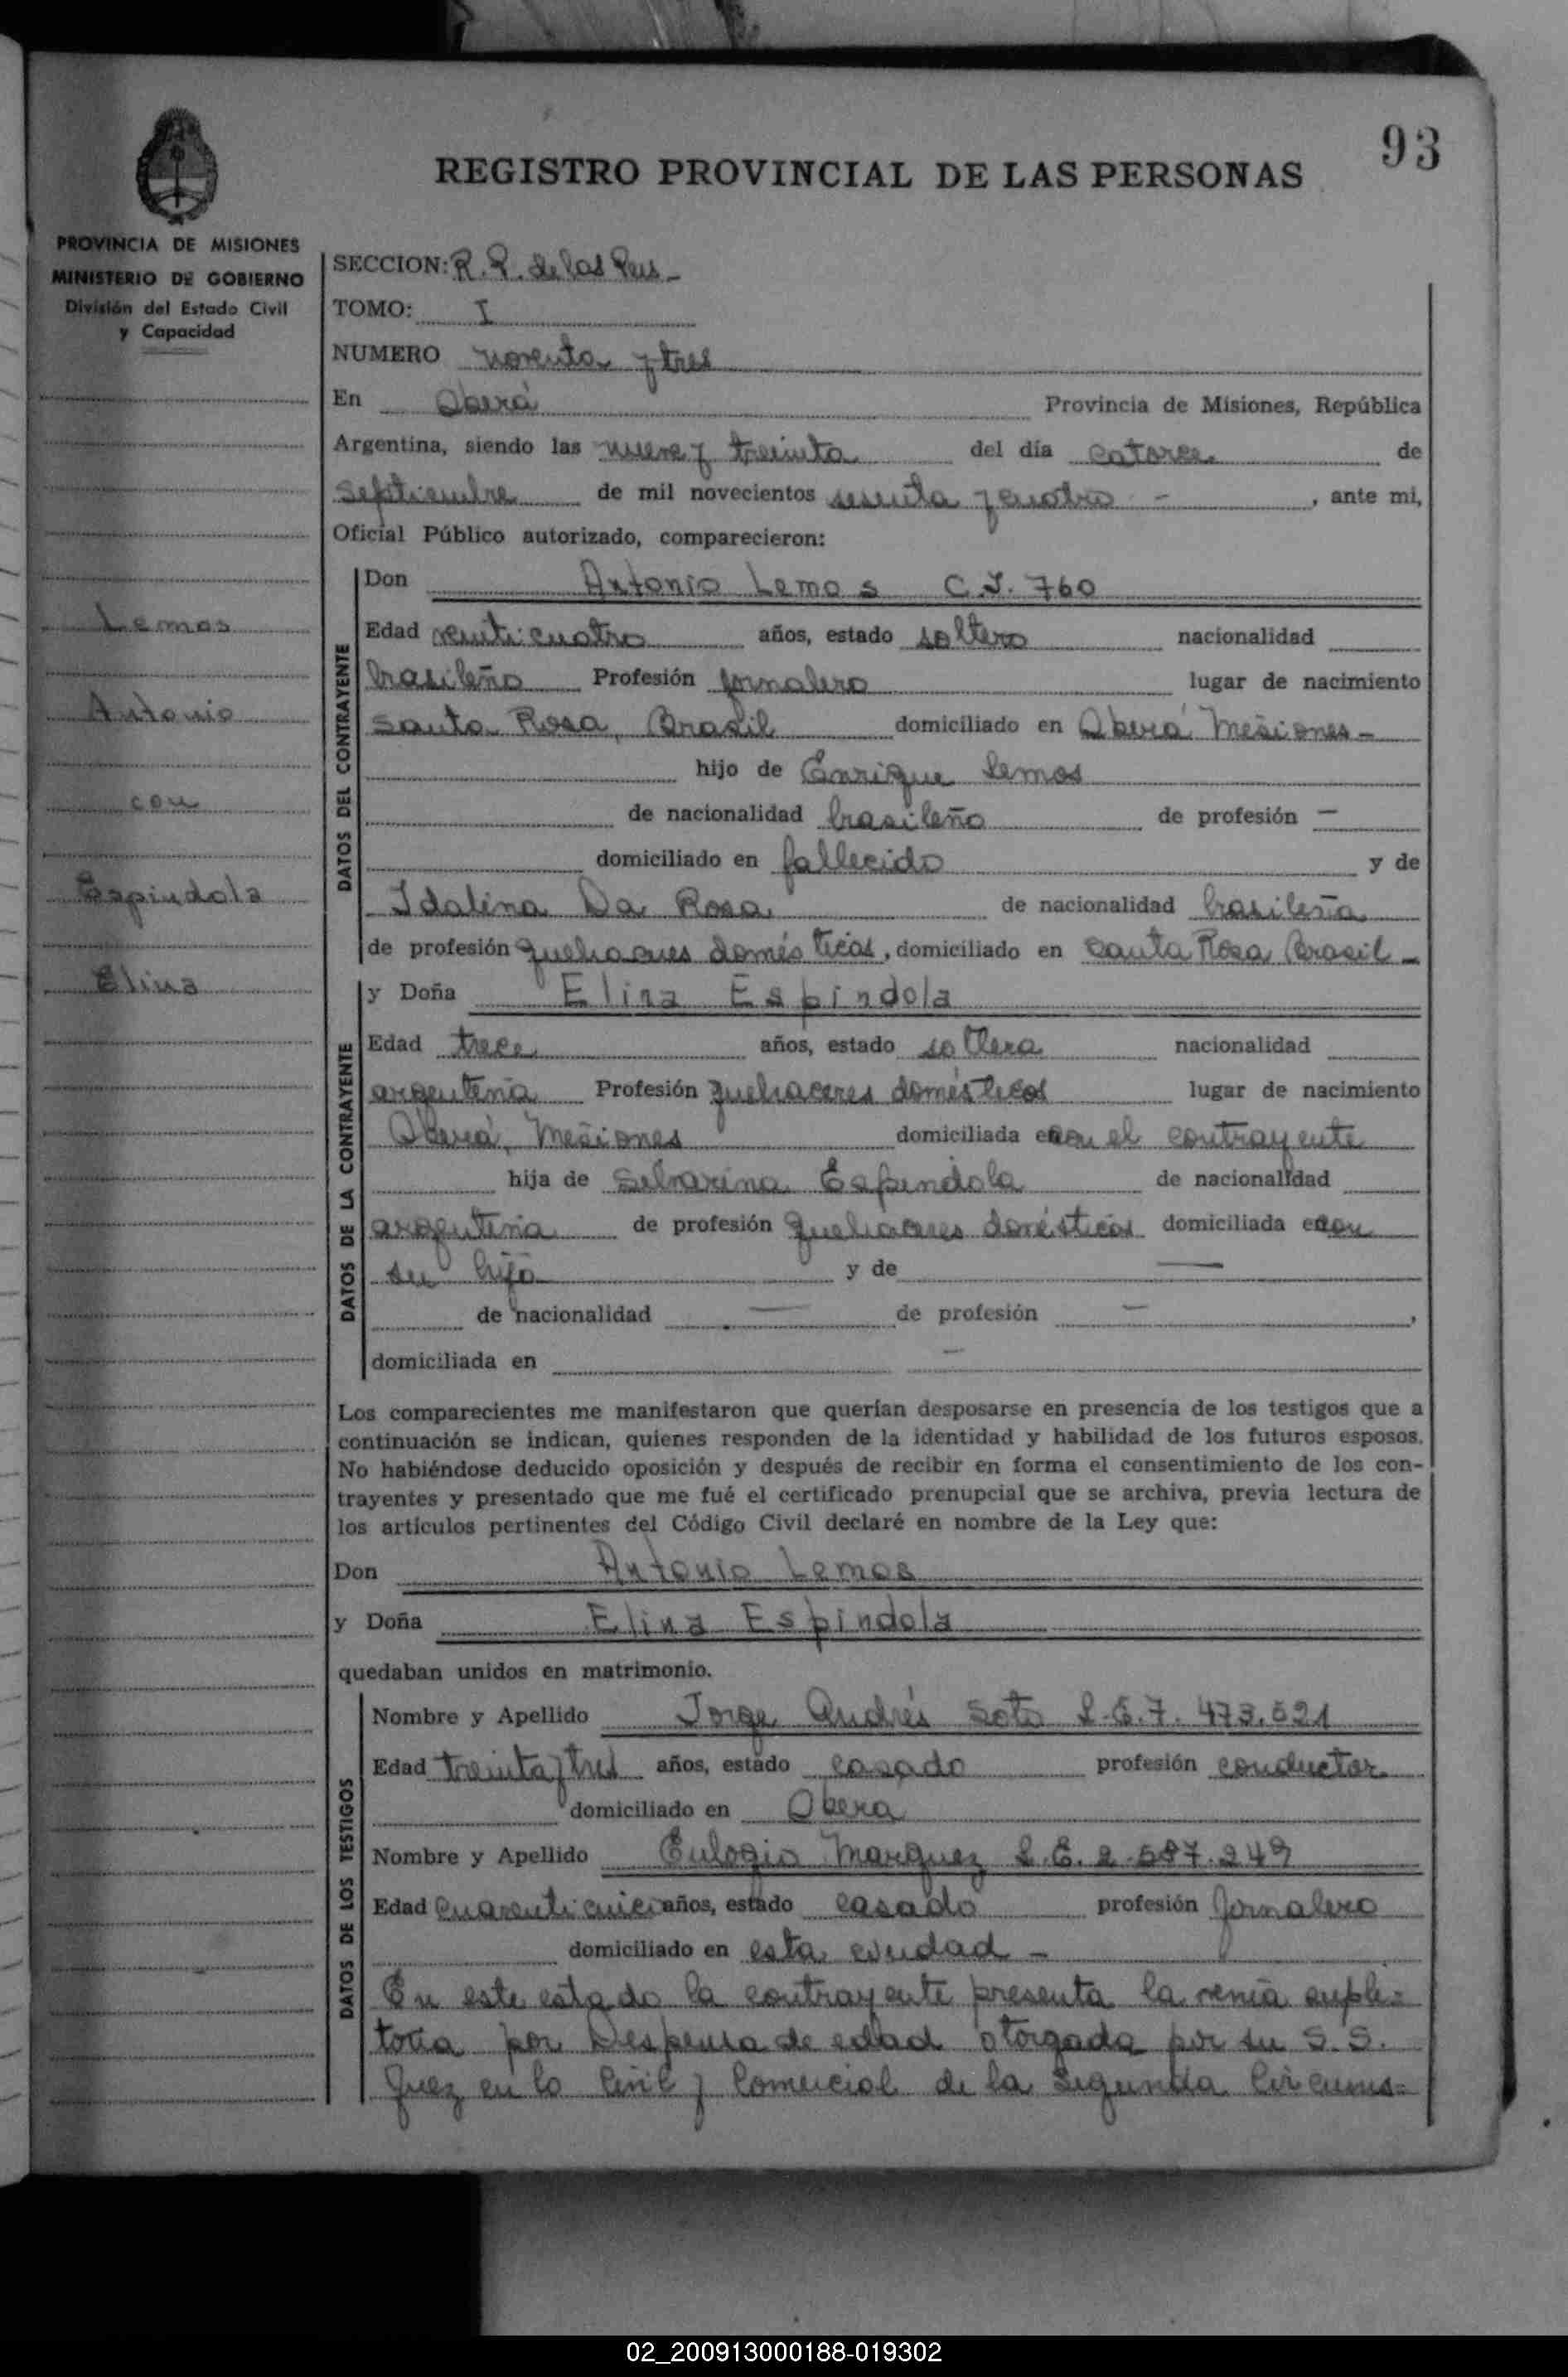 93
REGISTRO PROVINCIAL DE LAS PERSONAS
PROVINCIA DE MISIONES
MINISTERIO DE GOBIERNO
División del Estado Civil
y Capacidad
Lemos
Antonio
con
Espindola
Elina
SECCION: R. P. de las Pers -
TOMO: I
NUMERO noventa y tres
En Oberá Provincia de Misiones, República
Argentina, siendo las nueve y treinta del día catorce de
septiembre de mil novecientos sesenta y cuatro - , ante mi,
Oficial Público autorizado, comparecieron:
DATOS DEL CONTRAYENTE
Don Antonio Lemos C.I. 760
Edad veinticuatro años, estado soltero nacionalidad
brasileño Profesión jornalero lugar de nacimiento
Santa Rosa, Brasil domiciliado en Oberá Misiones -
hijo de Enrique Lemos
de nacionalidad brasileño de profesión —
domiciliado en fallecido y de
Idalina Da Rosa de nacionalidad brasileña
de profesión quehaceres domésticos, domiciliado en Santa Rosa Brasil -
DATOS DE LA CONTRAYENTE
y Doña Elina Espindola
Edad trece años, estado soltera nacionalidad
argentina Profesión quehaceres domésticos lugar de nacimiento
Oberá, Misiones domiciliada en con el contrayente
hija de Silvarina Espindola de nacionalidad
argentina de profesión quehaceres domésticos domiciliada en con
su hija y de —
de nacionalidad — de profesión — ,
domiciliada en —
Los comparecientes me manifestaron que querían desposarse en presencia de los testigos que a
continuación se indican, quienes responden de la identidad y habilidad de los futuros esposos.
No habiéndose deducido oposición y después de recibir en forma el consentimiento de los con-
trayentes y presentado que me fué el certificado prenupcial que se archiva, previa lectura de
los artículos pertinentes del Código Civil declaré en nombre de la Ley que:
Don Antonio Lemos
y Doña Elina Espindola
quedaban unidos en matrimonio.
DATOS DE LOS TESTIGOS
Nombre y Apellido Jorge Andrés Soto L.E. 7.473.521
Edad treinta y tres años, estado casado profesión conductor
domiciliado en Obera
Nombre y Apellido Eulogio Marquez L.E. 2.587.249
Edad años, estado casado profesión jornalero
domiciliado en esta ciudad -
En este estado la contrayente presenta la venia suple=
toria por Dispensa de edad otorgada por su S. S.
Juez en lo Civil y Comercial de la Segunda Circuns=
02_200913000188-019302